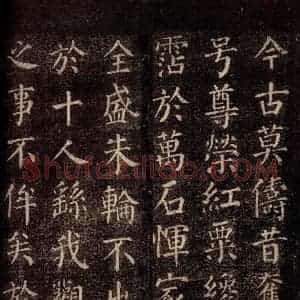 今古莫儔昔奮
号尊榮紅粟纔
霑於萬石惲家
全盛朱輪不出
於十人繇我觀
之事不侔矣於
Shufaziliao.com